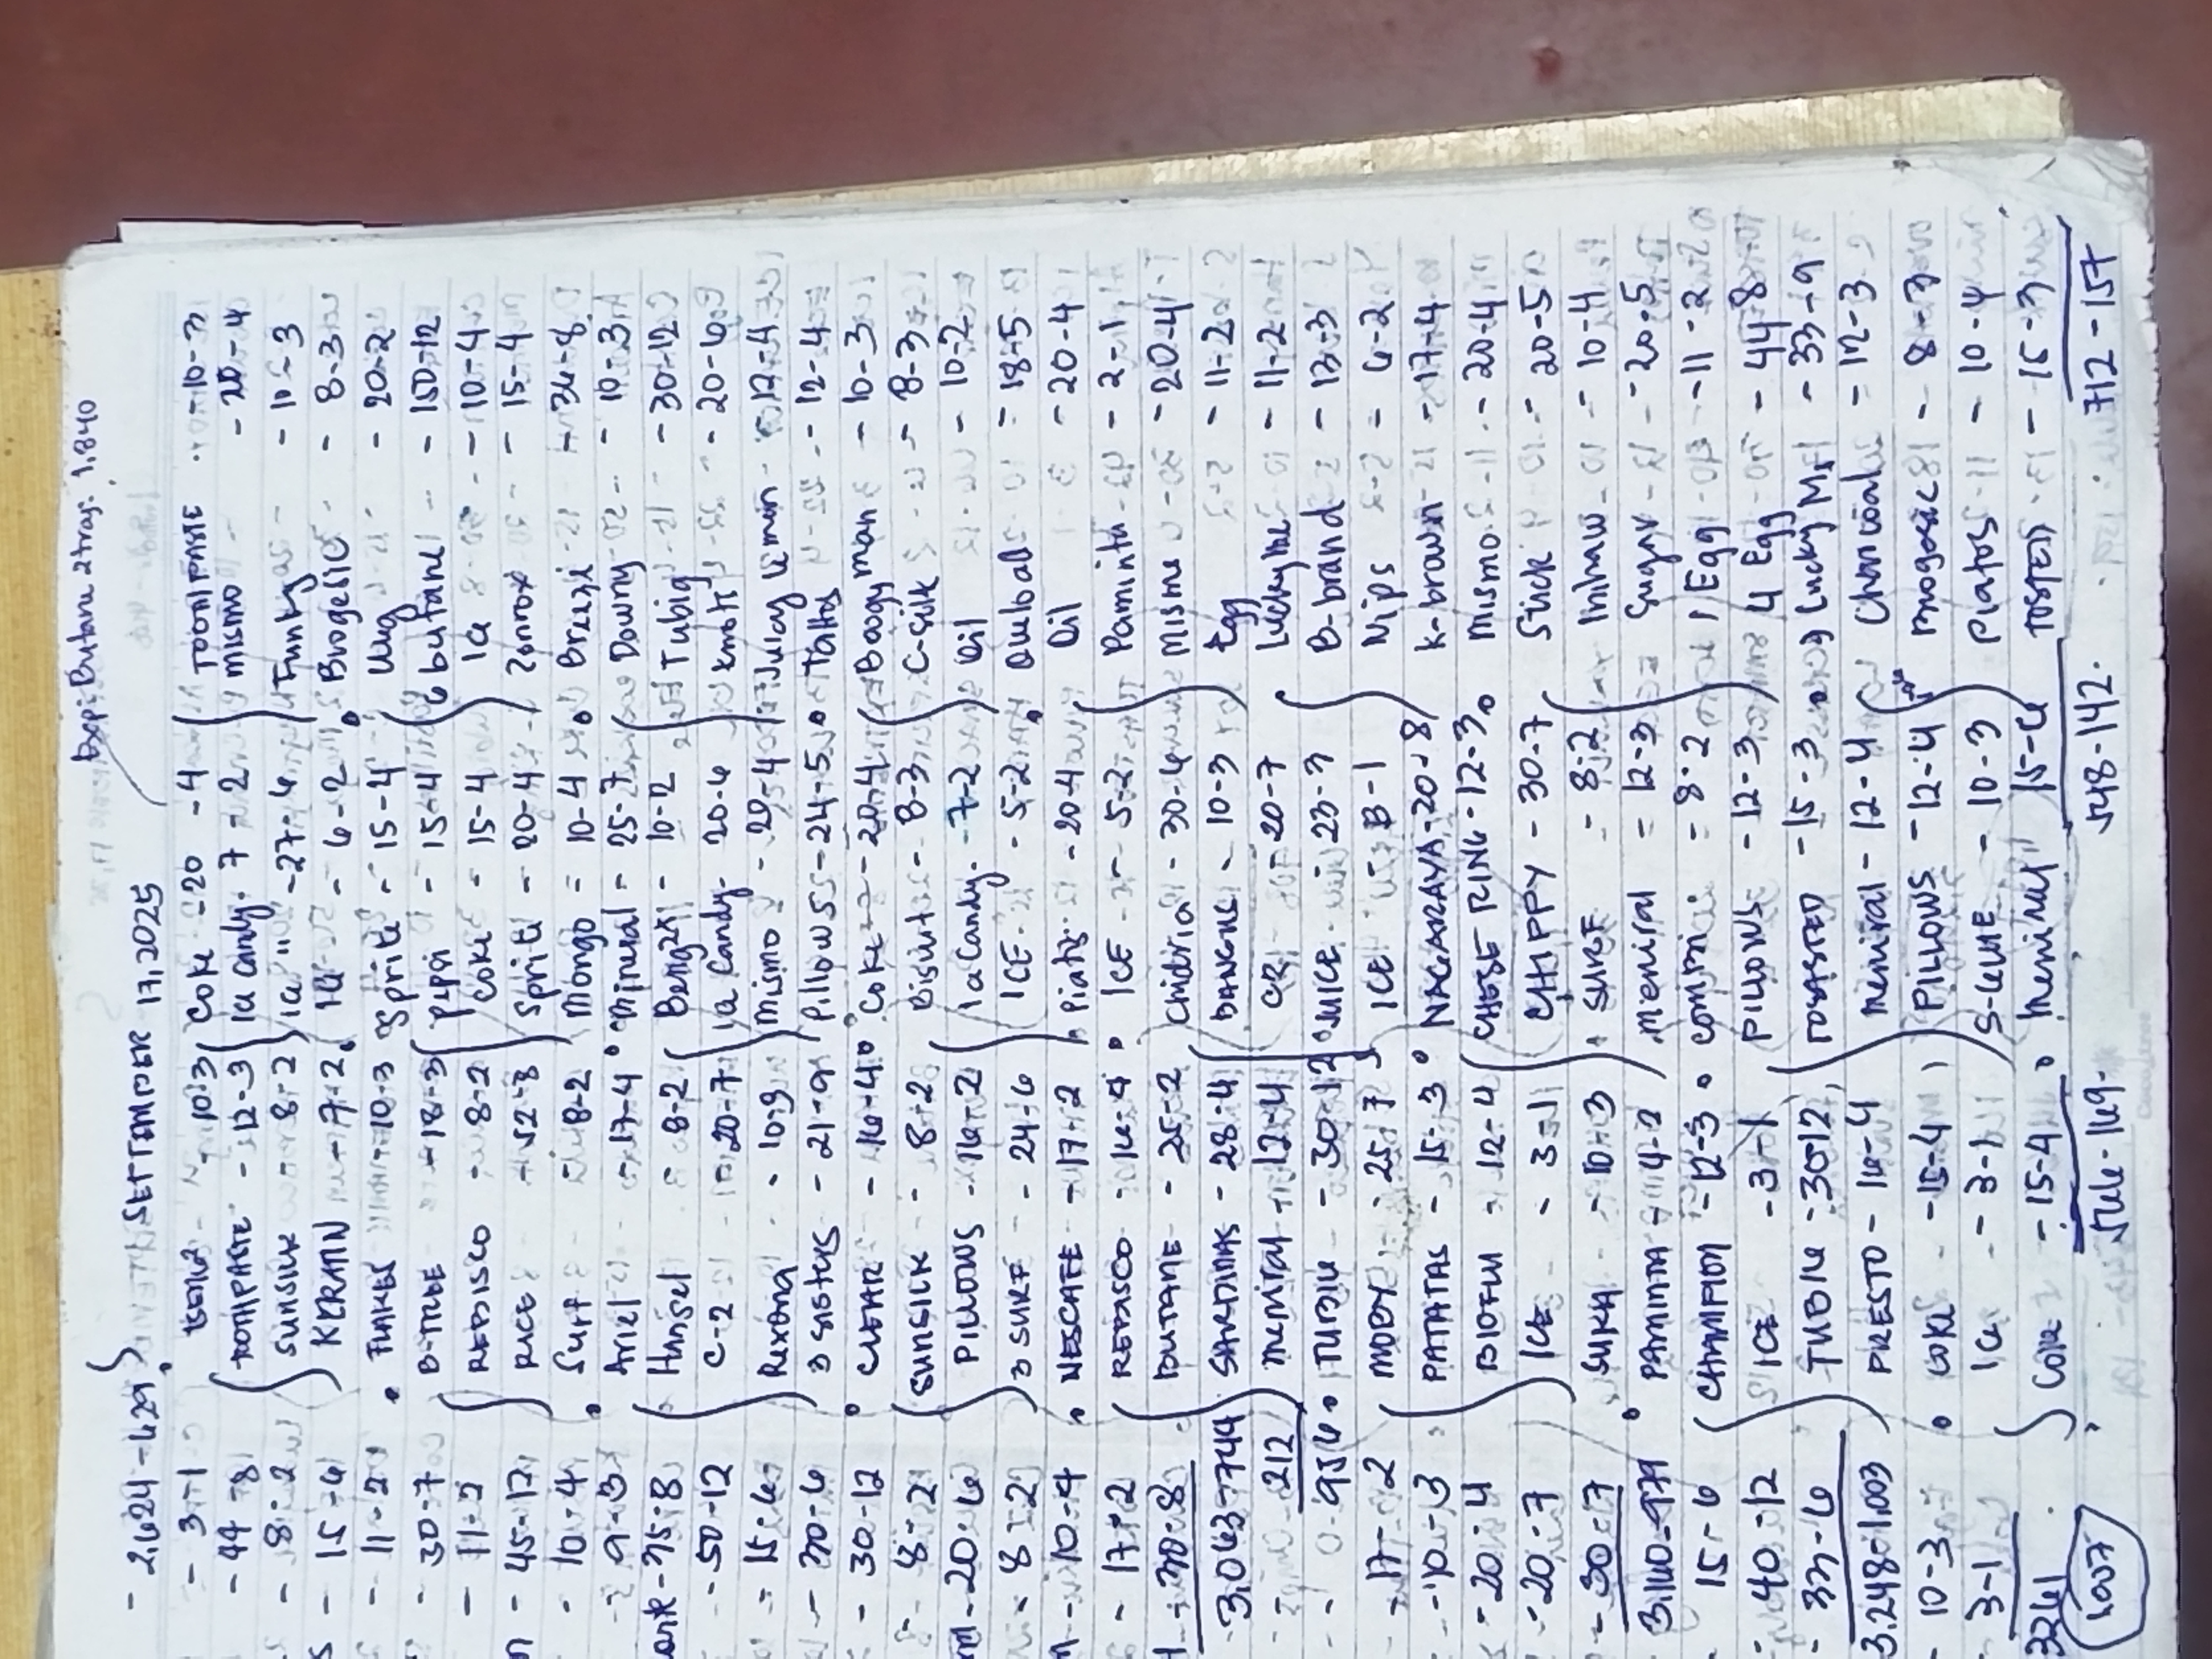 Exp: Butane 2 tray. 1,840
SEPTEMBER 17, 2025
- 2,624-629
- 3-1
- 44-8
- 8-2
- 15-6
- 11-2
- 30-7
- 11-2
- 45-12
- 10-4
- 9-3
- 35-8
- 50-12
- 15-6
- 30-6
- 30-12
- 8-2
- 20-6
- 8-2
- 10-4
- 17-2
- 30-8
- 3,063-744
- 212
- 956
- 17-2
- 10-3
- 20-4
- 20-7
- 30-7
3,140-979
15-6
- 40-12
- 33-6
3,248-1,003
- 10-3
- 3-1
3261
1,007
- 10-3
TOOTHPASTE - 12-3
SUNSILK - 8-2
KERATIN - 7-2
FLAKES - 10-3
B-TUBE - 18-3
REBISCO - 8-2
RICE - 52-8
Surf - 8-2
Ariel - 17-4
Hansel - 8-2
C-2 - 20-7
Rexona - 10-9
3 SISTERS - 21-9
CLEAR - 16-4
SUNSILK - 8-2
PILLOWS - 16-2
3 SURF - 24-6
NESCAFE - 17-2
REBISCO - 16-4
BUTANE - 25-2
SARDINAS - 28-4
Meniral - 12-4
TUBIG - 30-12
MOBY - 25-7
PATATAS - 15-3
BIOFLU - 12-4
ICE - 3-1
SUKA - 10-3
PAMINTA - 4-2
CHAMPION - 12-3
ICE - 3-1
TUBIG - 30-12
PRESTO - 16-4
COKE - 15-4
Ice - 3-1
Coke - 15-4
566-169-
Coke - 20-4
Ice Candy - 7-2
Ice " - 27-6
Ice - 6-2
Sprite - 15-4
Pepsi - 15-4
Coke - 15-4
Sprite - 20-4
Mongo - 10-4
Mineral - 25-7
Beng2x - 10-2
Ice Candy - 20-6
Mismo - 20-4
Pillows 5 - 24-5
Coke - 20-4
Biscuit - 8-3
Ice Candy - 7-2
ICE - 5-2
Piatos - 20-4
ICE - 5-2
- 30-6
- 10-3
- 20-7
JUICE - 23-3
ICE - 8-1
NAGARAYA - 20-8
CHESE RING - 12-3
CHIPPY - 30-7
SURF - 8-2
Meniral - 12-3
- 8-2
PILLOWS - 12-3
TOASTED - 15-3
Meniral - 12-4
PILLOWS - 12-4
- 10-3
Meniral - 15-6
548-142.
TOOTHPASTE - 10-3
Mismo - 20-4
Funky - 10-3
Biogesic - 8-3
- 20-2
6 butane - 150-12
Ice - 10-4
Zonrox - 15-4
Breeze - 36-8
Downy - 10-3
Tubig - 30-12
Knorr - 20-6
Julay Lemon - 12-4
- 12-4
Boogyman - 10-3
C-Silk - 8-3
Oil - 10-2
Oilcloth
Oil - 20-4
Paminta - 2-1
Mismo - 20-4
Egg - 11-2
Luckyme - 11-2
B-brand - 13-3
Nips - 6-2
K-brown - 17-4
Mismo - 20-4
Stick - 20-5
Inihaw - 10-4
Sugar - 20-5
1 Egg - 11-2
4 Egg - 44-8
Lucky Me - 33-9
Charcoal - 12-3
Biogesic - 8-3
Piatos - 10-4
TOSTED - 15-3
712-157